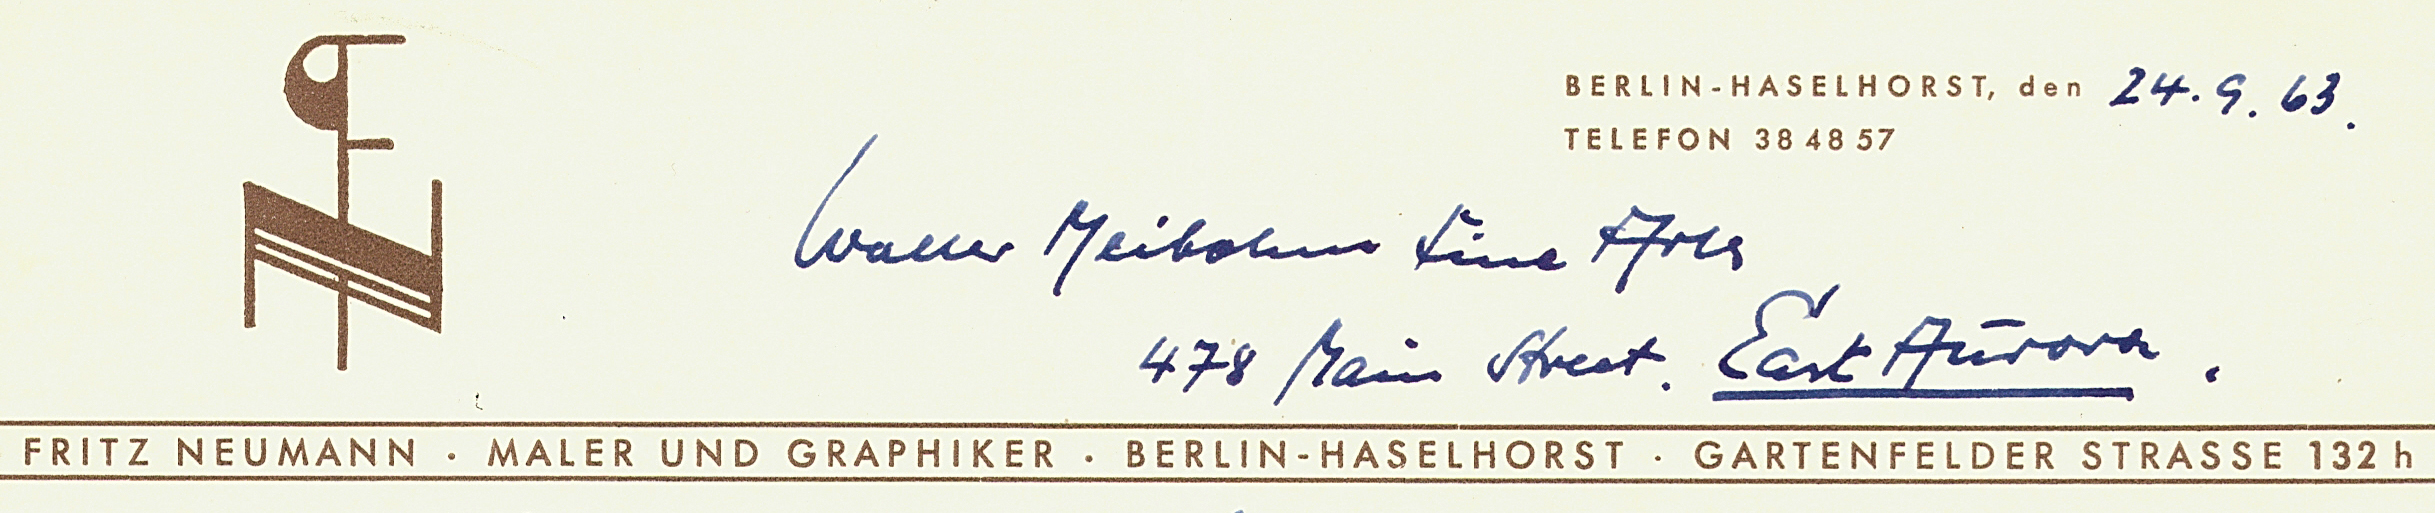 BERLIN-HASELHORST, den 24.9.63.
TELEFON 38 48 57
Walter Meibohm Fine Arts
478 Main Street. East Aurora.
FRITZ NEUMANN · MALER UND GRAPHIKER · BERLIN-HASELHORST · GARTENFELDER STRASSE 132 h